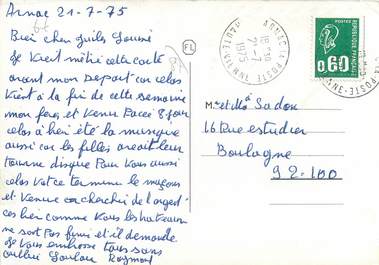 Arnac 21-7-75
Bien cher quiles Louisé
Je Vient métre cette carte
avant mon depart car celas
Vient à la fin de cette semaine
mon frere et Venu Passé 8 jour
celas à bien été la musique
aussi car les filles avait leur
tourne disque Pour Vous aussi
celas Vat ce terminé le magasin
et Venue cherchér de l'argent
ces bien comme Vous les
ne sort Pas finis et il demande
Je Vous embrasse tous sans
oublier Loulou Raymond
FL
ARNAC LA POSTE
HTE-VIENNE
21-7
1975
POSTES
RÉPUBLIQUE FRANÇAISE
0,60
Mr et Mme Sadou
16 Rue
Boulogne
92-100